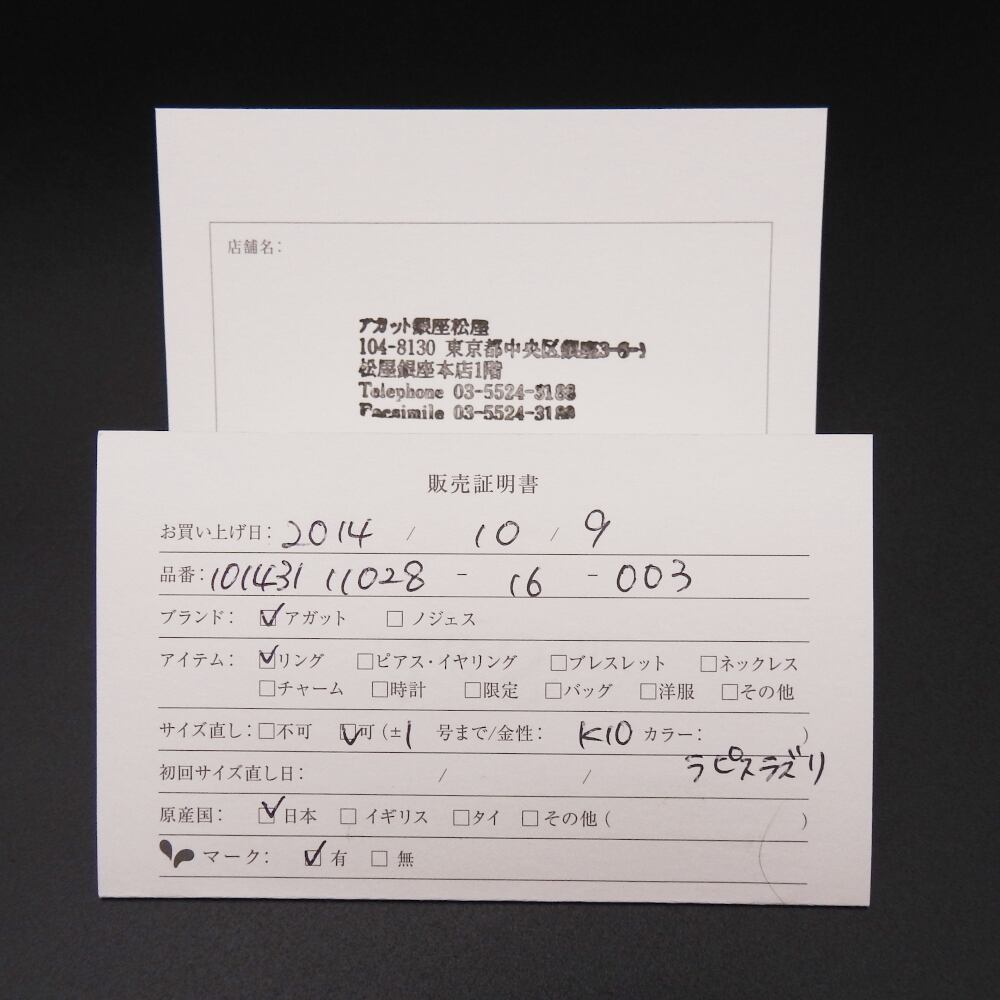 店舗名：
アガット銀座松屋
104-8130 東京都中央区銀座3-6-1
松屋銀座本店1階
Telephone 03-5524-3188
Facsimile 03-5524-3188
販売証明書
お買い上げ日：2014 / 10 / 9
品番：101431 11028 - 16 - 003
ブランド：☑アガット □ノジェス
アイテム：☑リング □ピアス・イヤリング □ブレスレット □ネックレス
□チャーム □時計 □限定 □バッグ □洋服 □その他
サイズ直し：□不可 ☑可（±1 号まで/金性： K10 カラー： ）
ラピスラズリ
初回サイズ直し日： / /
原産国：☑日本 □イギリス □タイ □その他（ ）
マーク：☑有 □無